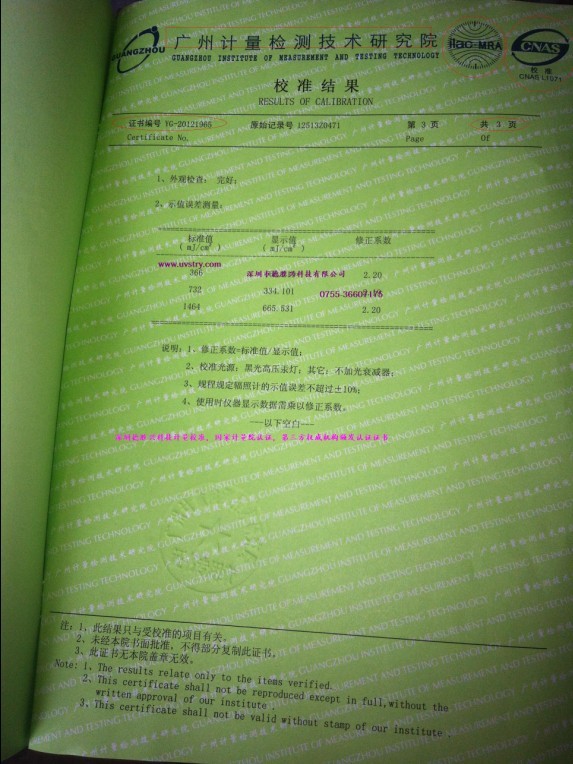 GUANGZHOU
广州计量检测技术研究院
GUANGZHOU INSTITUTE OF MEASUREMENT AND TESTING TECHNOLOGY
ilac-MRA
CNAS
校 准
CNAS L7571
校 准 结 果
RESULTS OF CALIBRATION
证书编号 YG-20121965 原始记录号 1251320471 第 3 页 共 3 页
Certificate No. Page Of
1、外观检查： 完好；
2、示值误差测量：
标准值 显示值 修正系数
( mJ/cm² ) ( mJ/cm² )
www.uvstry.com
366 2.20
732 334.101
0755-36607175
1464 665.531 2.20
说明：1、修正系数=标准值/显示值；
2、校准光源：黑光高压汞灯；其它：不加光衰减器；
3、规程规定辐照计的示值误差不超过±10%；
4、使用时仪器显示数据需乘以修正系数。
---以下空白---
注：1、此结果只与受校准的项目有关。
2、未经本院书面批准，不得部分复制此证书。
3、此证书无本院盖章无效。
Note: 1、The results relate only to the items verified.
2、This certificate shall not be reproduced except in full,without the
written approval of our institute .
3、This certificate shall not be valid without stamp of our institute .